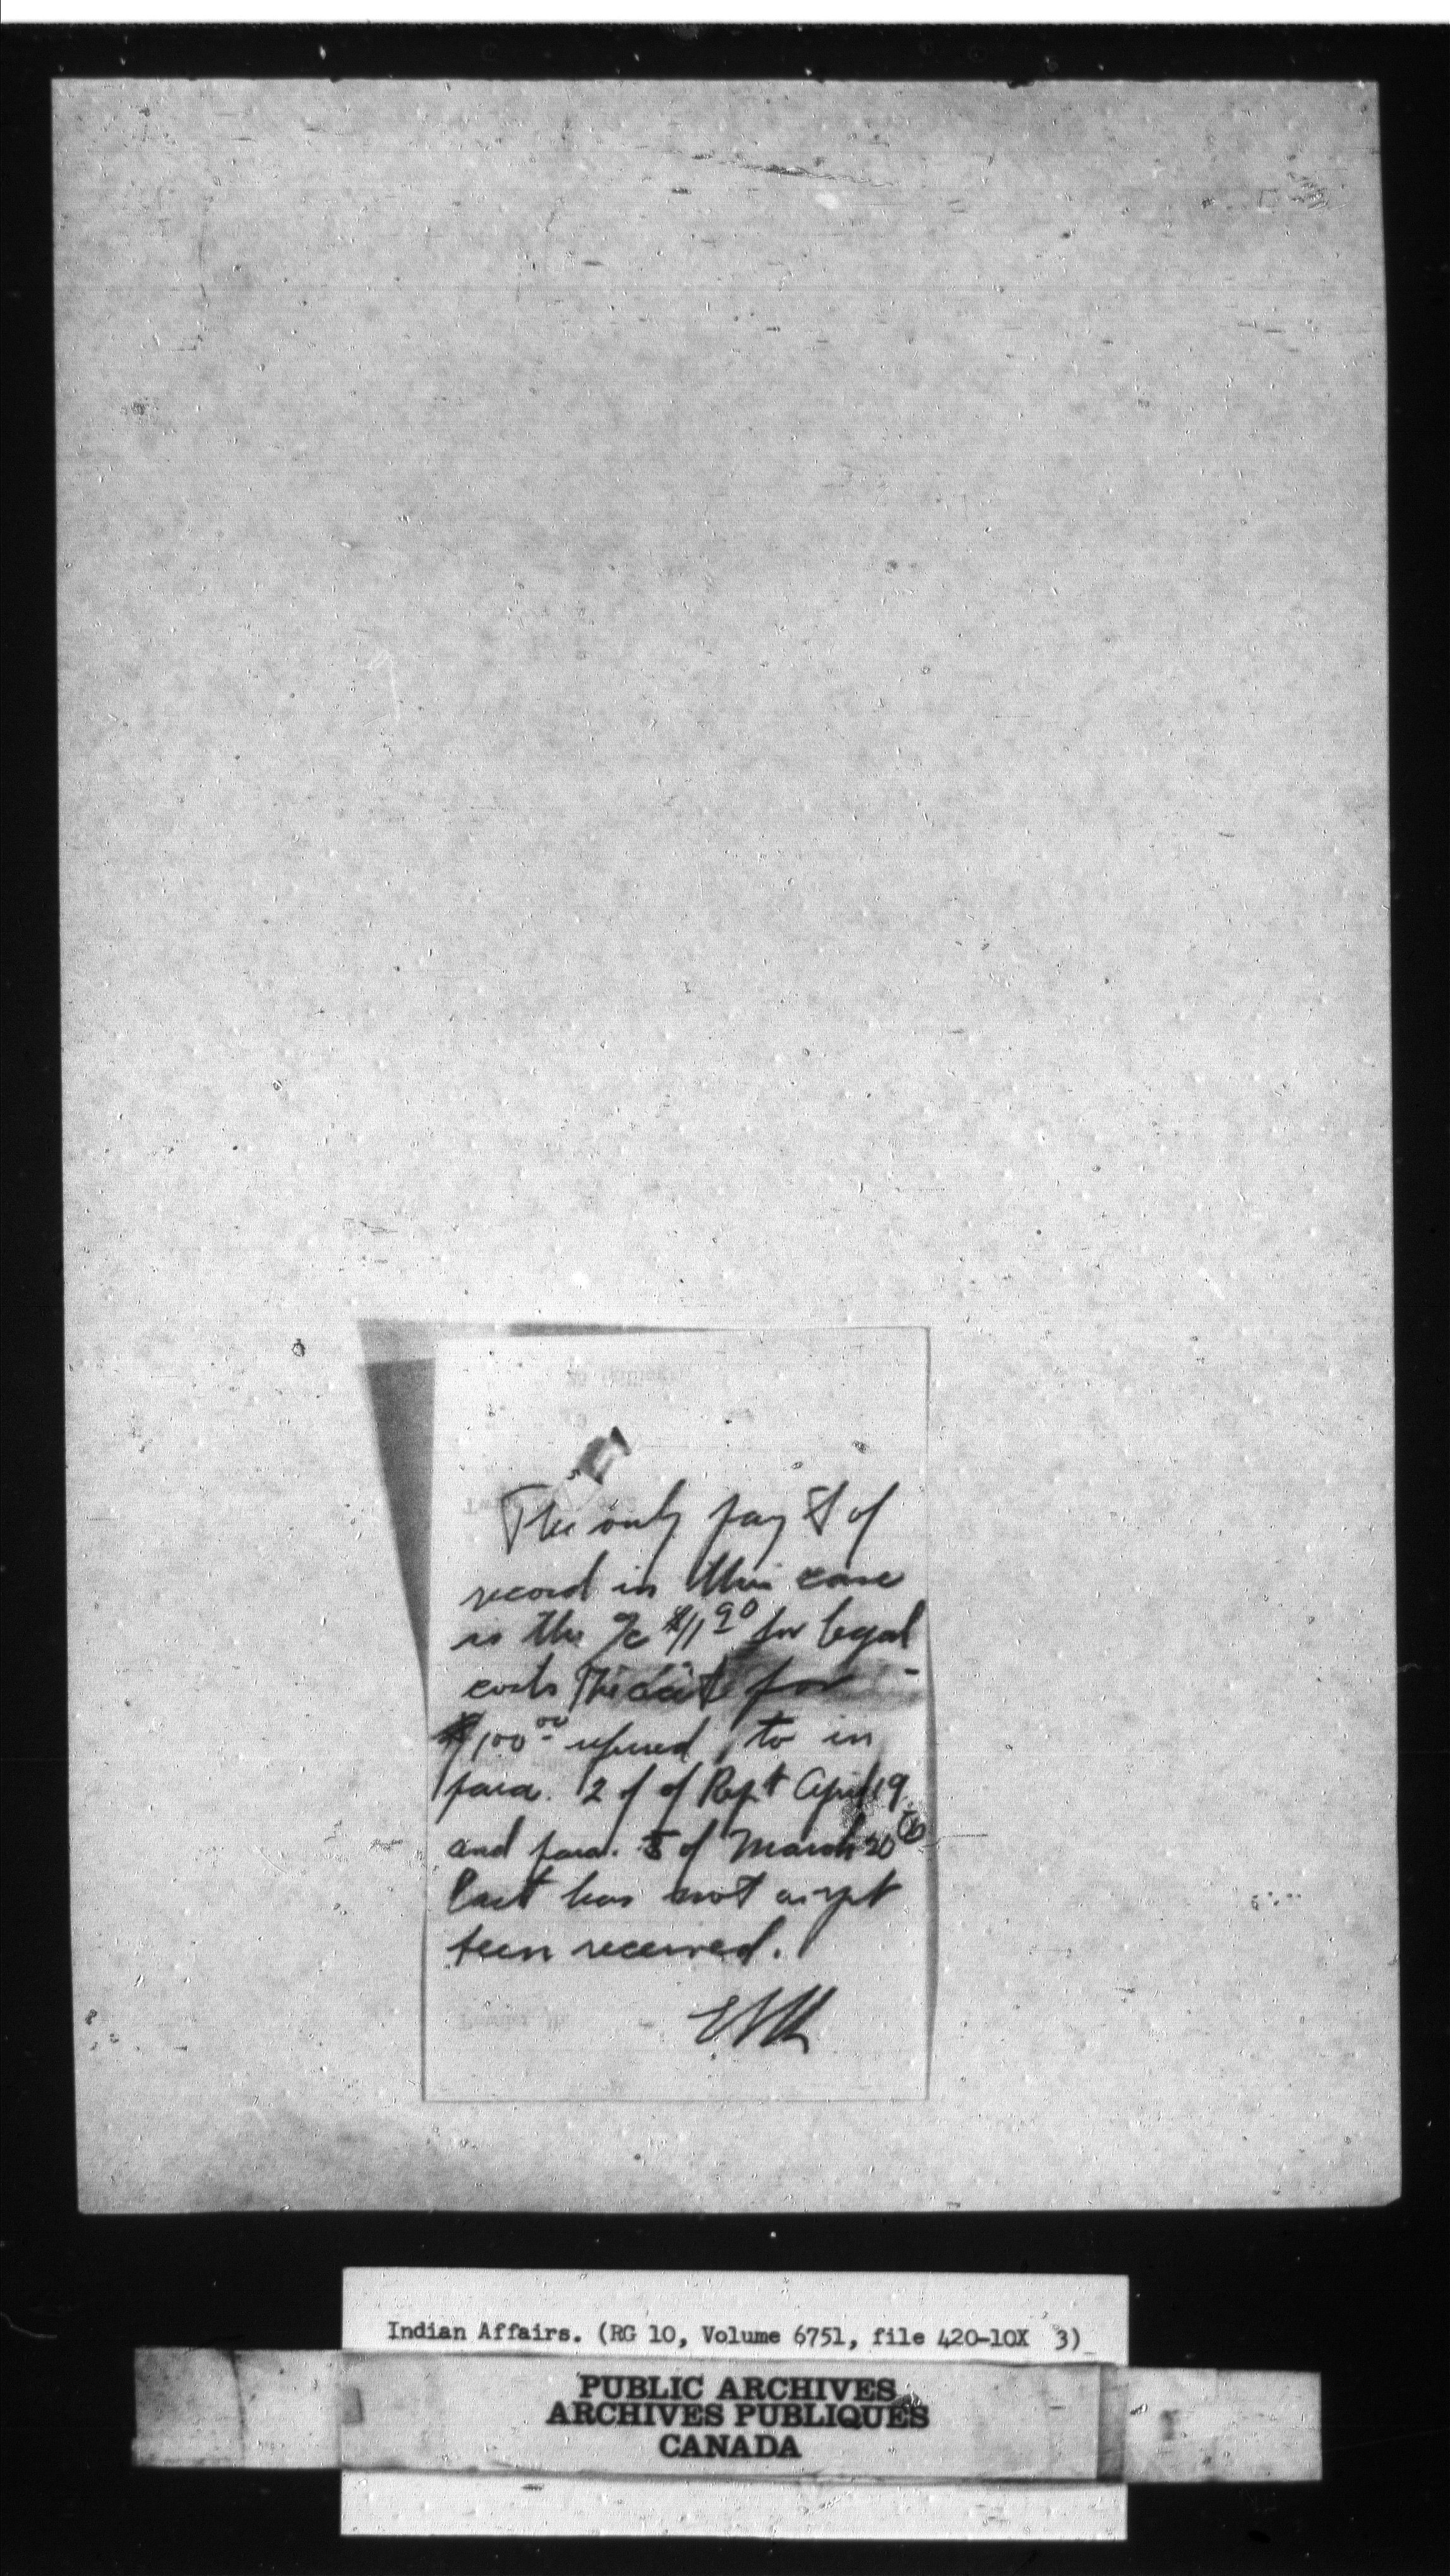 The only pay't of
record in this case
is the a/c $11.90 for legal
costs The acct for
$100.00 referred to in
para. 2 of Rept April 19
and para. 5 of March 20
last has not as yet
been received.
Indian Affairs. (RG 10, Volume 6751, file 420-10X 3)
PUBLIC ARCHIVES
ARCHIVES PUBLIQUES
CANADA